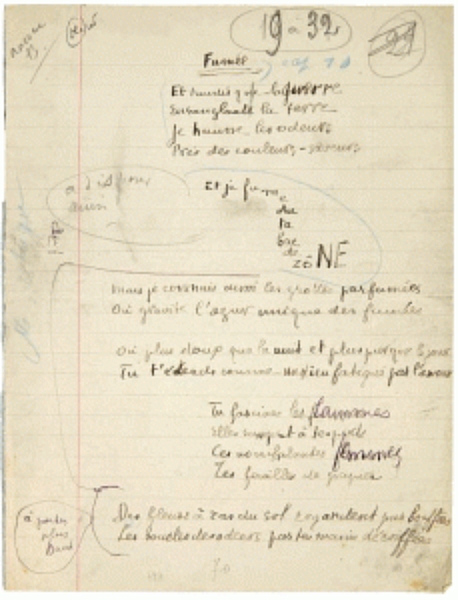 19 à 32
Fumée
Et tandis que la guerre
Ensanglante la terre
Je hausse les odeurs
Près des couleurs-saveurs
à disposer
ainsi
Et je fu
m
e
du
ta
bac
de
zoNE
mais je connais aussi les grottes parfumées
Où gravite l'azur unique des fumées
Où plus doux que la nuit et plus pur que le jour
Tu t'étends comme un dieu fatigué par l'amour
Tu fascines les flammes
Elles rampent à tes pieds
Ces nonchalantes femmes
Tes feuilles de papier
à porter
plus
haut
Des fleurs à ras du sol regardent par bouffées
Les boucles des odeurs par tes mains décoiffées